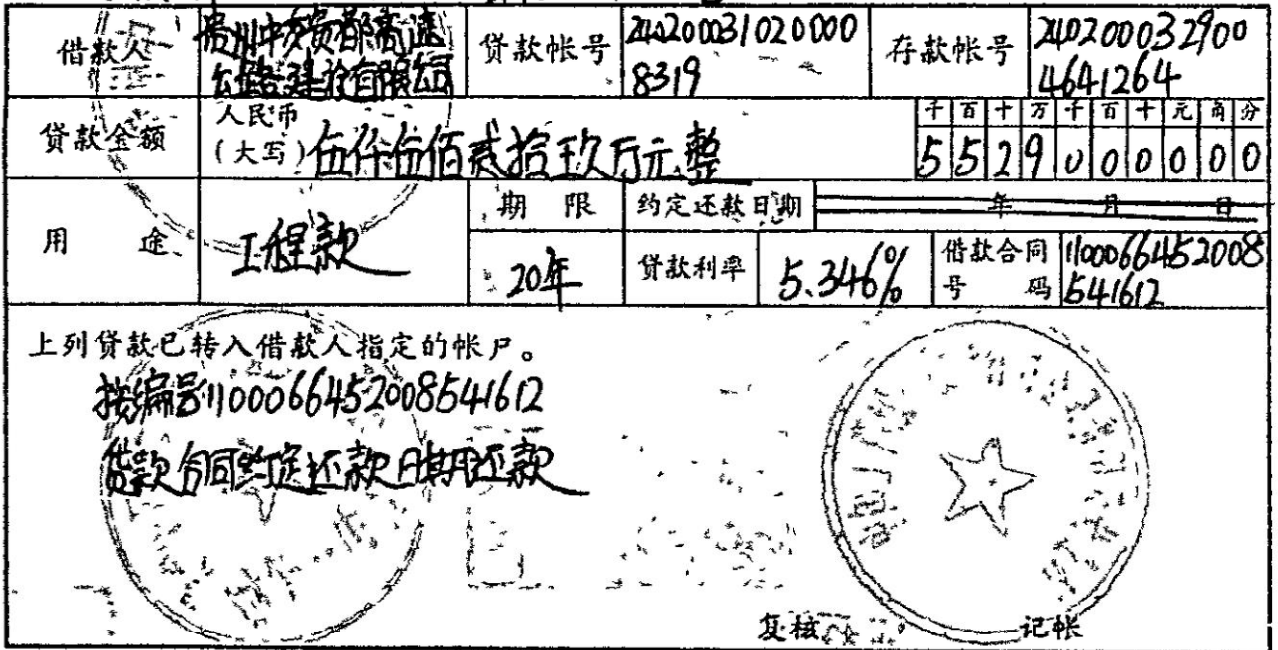 借款人
贵州中交贵都高速
公路建设有限公司
贷款帐号
2402000310200000
8319
存款帐号
240200032900
4641264
贷款金额
人民币
(大写)伍仟伍佰贰拾玖万元整
千百十万千百十元角分
5529000000
用 途
工程款
期 限
20年
约定还款日期
年 月 日
贷款利率
5.346%
借款合同
号 码
11000664452008
541612
上列贷款已转入借款人指定的帐户。
按编号11000664452008541612
贷款合同约定还款日期还款
复核
记帐